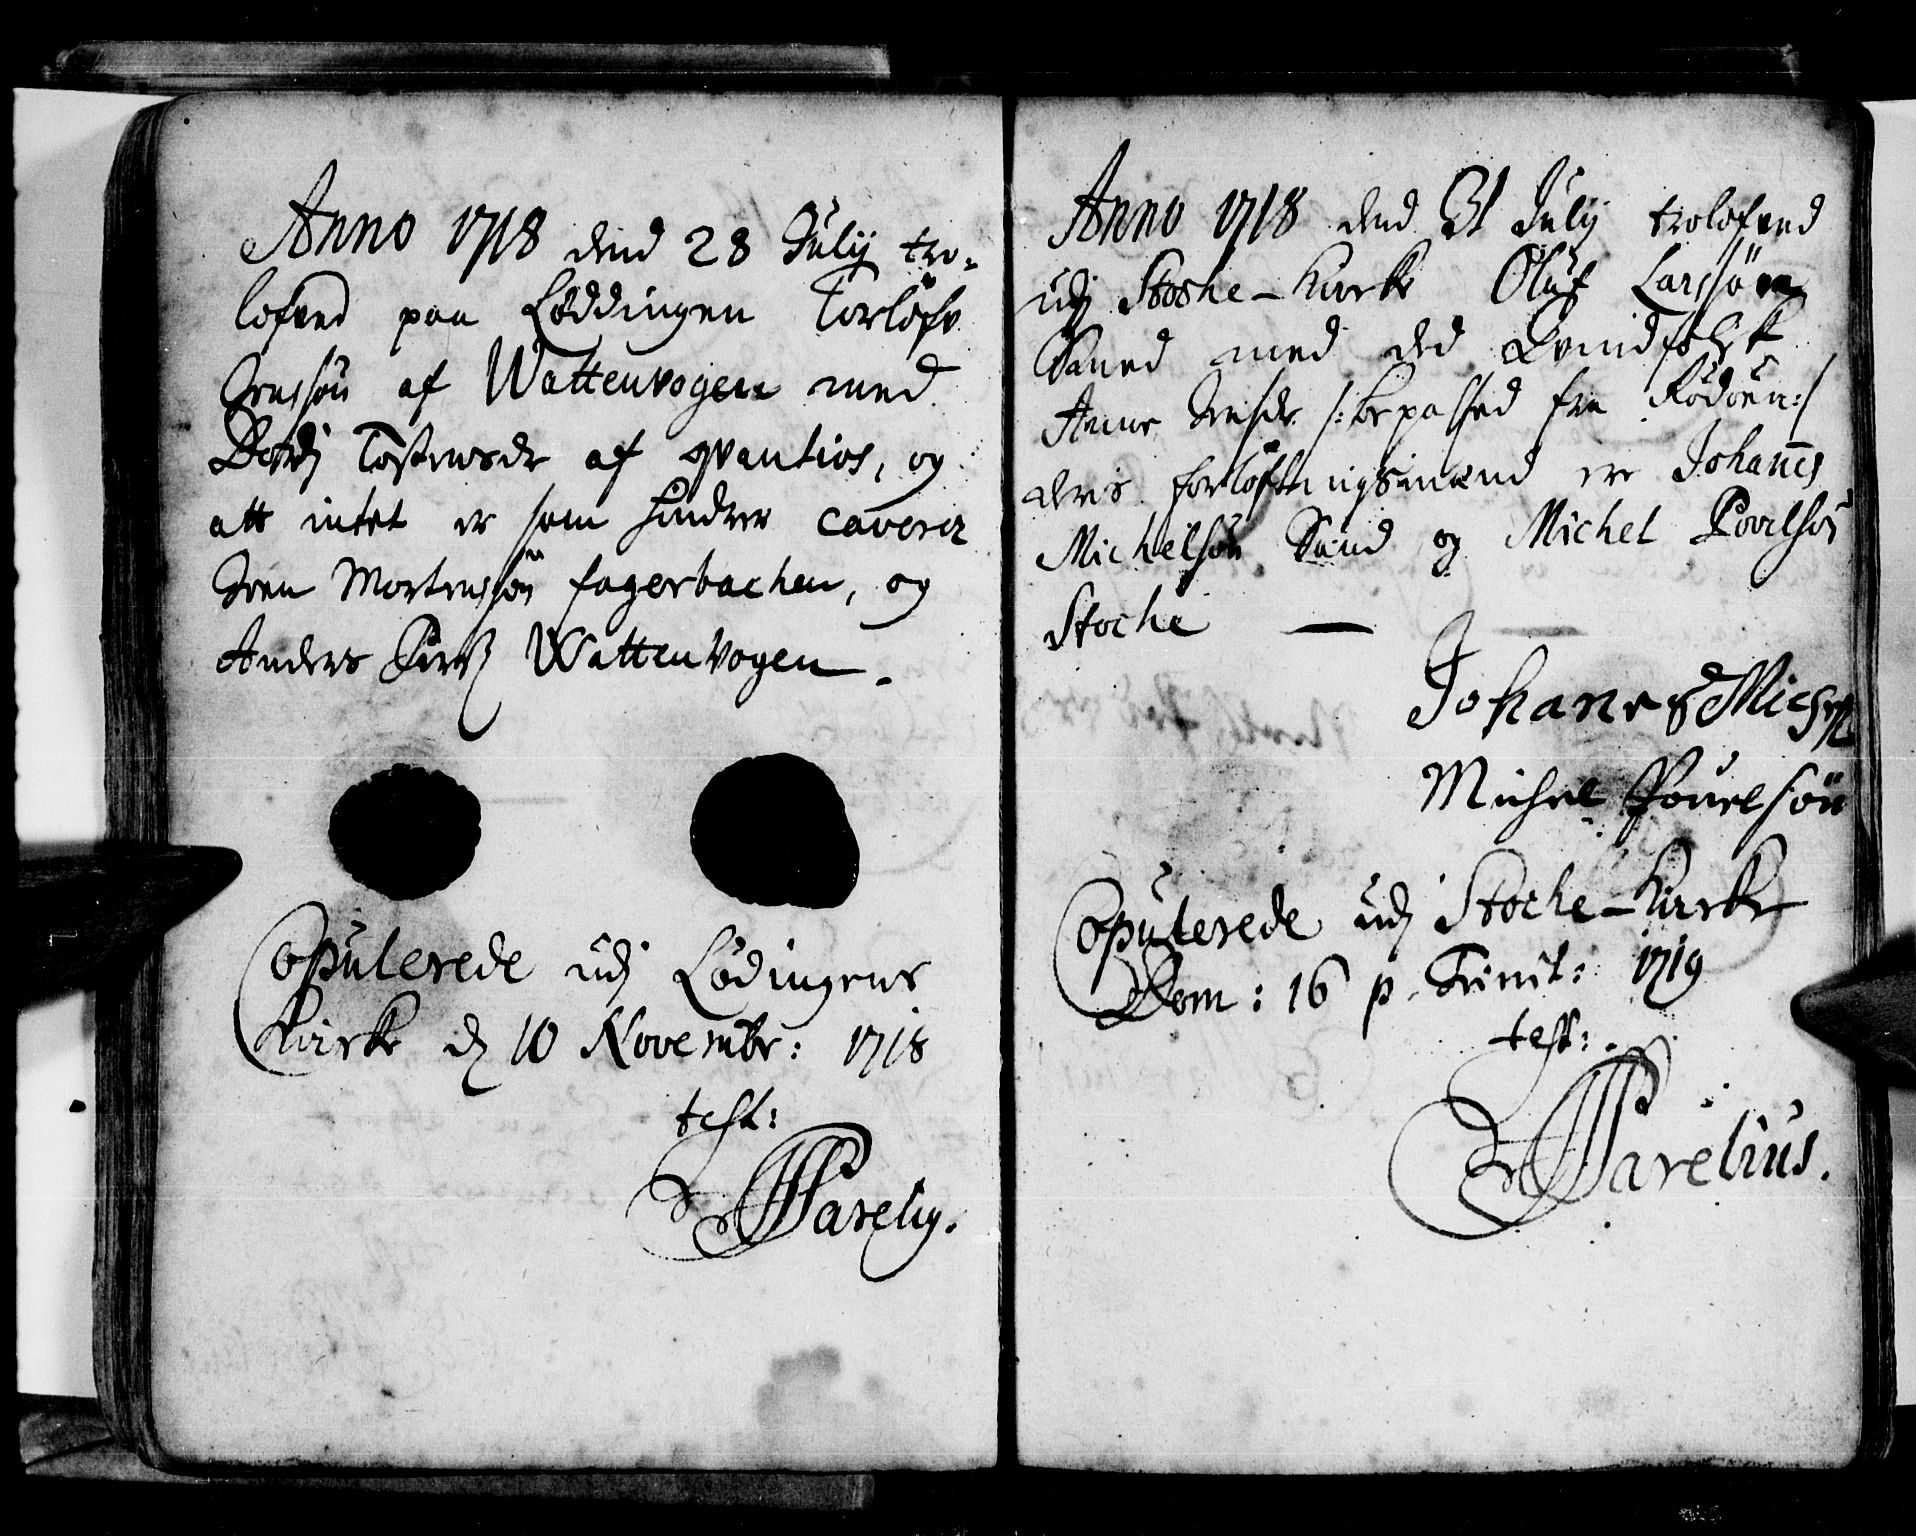 Anno 1718 dend 28 Julij tro-
lofved paa Løddingen Torlöf
Iversøn af Wattenvogen med
Tostensdr af qvantios, og
att intet er som hindrer cavera
Iven Mortensøn fagerbachen, og
Anders Wattenvogen.
Copulerede udj Lödingens
Kircke d 10 Novembr: 1718
test:
Parelig.
Anno 1718 dend 31 Julij trolofved
udj Stoche-Kircke Oluf Larssøn
Sand med ded Qvindfolck
Anne Iversdr /: bepassed fra Rödöen:/
deris forlöftningsmænd ere Johannes
Michelsön Sand og Michel Povelsøn
Stoche —
Johanes Michels
Michel Pouelsøn
Copulerede udj Stoche-Kircke
Dom: 16 p. Trinit: 1719
test:
Parelius.